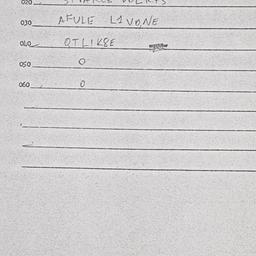 020
030 AFULE L1VONE
040 QTLIK8E
050 0
060 0